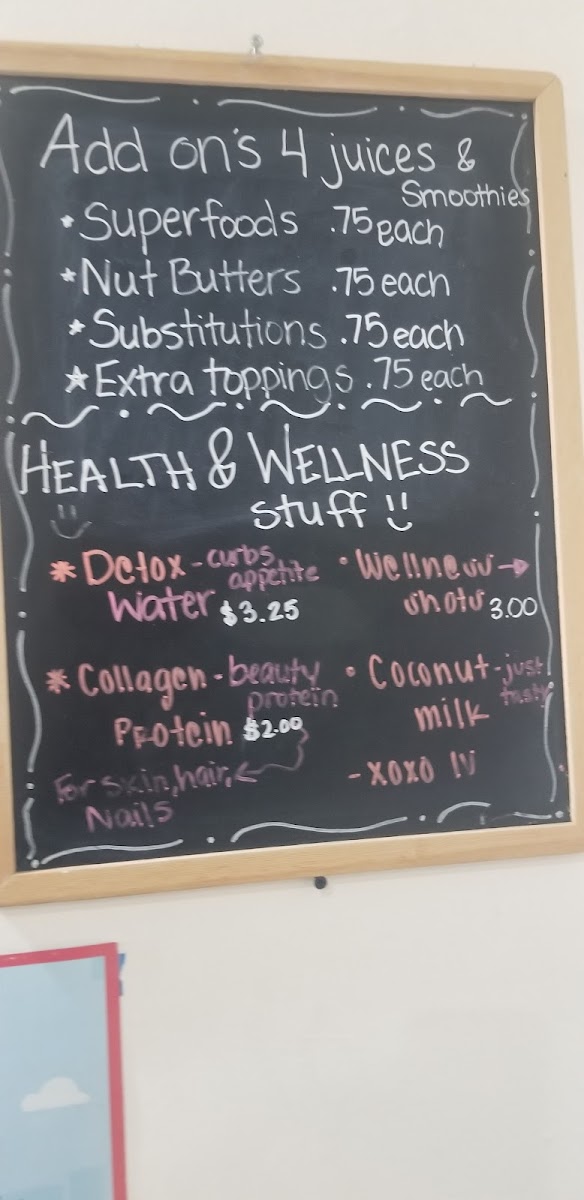 Add on's 4 juices &
Smoothies
* Superfoods .75 each
* Nut Butters .75 each
* Substitutions .75 each
* Extra toppings .75 each
HEALTH & WELLNESS
stuff
* Detox - curbs appetite
Water $3.25
• Wellness →
shots 3.00
* Collagen - beauty protein
Protein $2.00
For skin, hair, ←
Nails
• Coconut - just tasty
milk
- xoxo